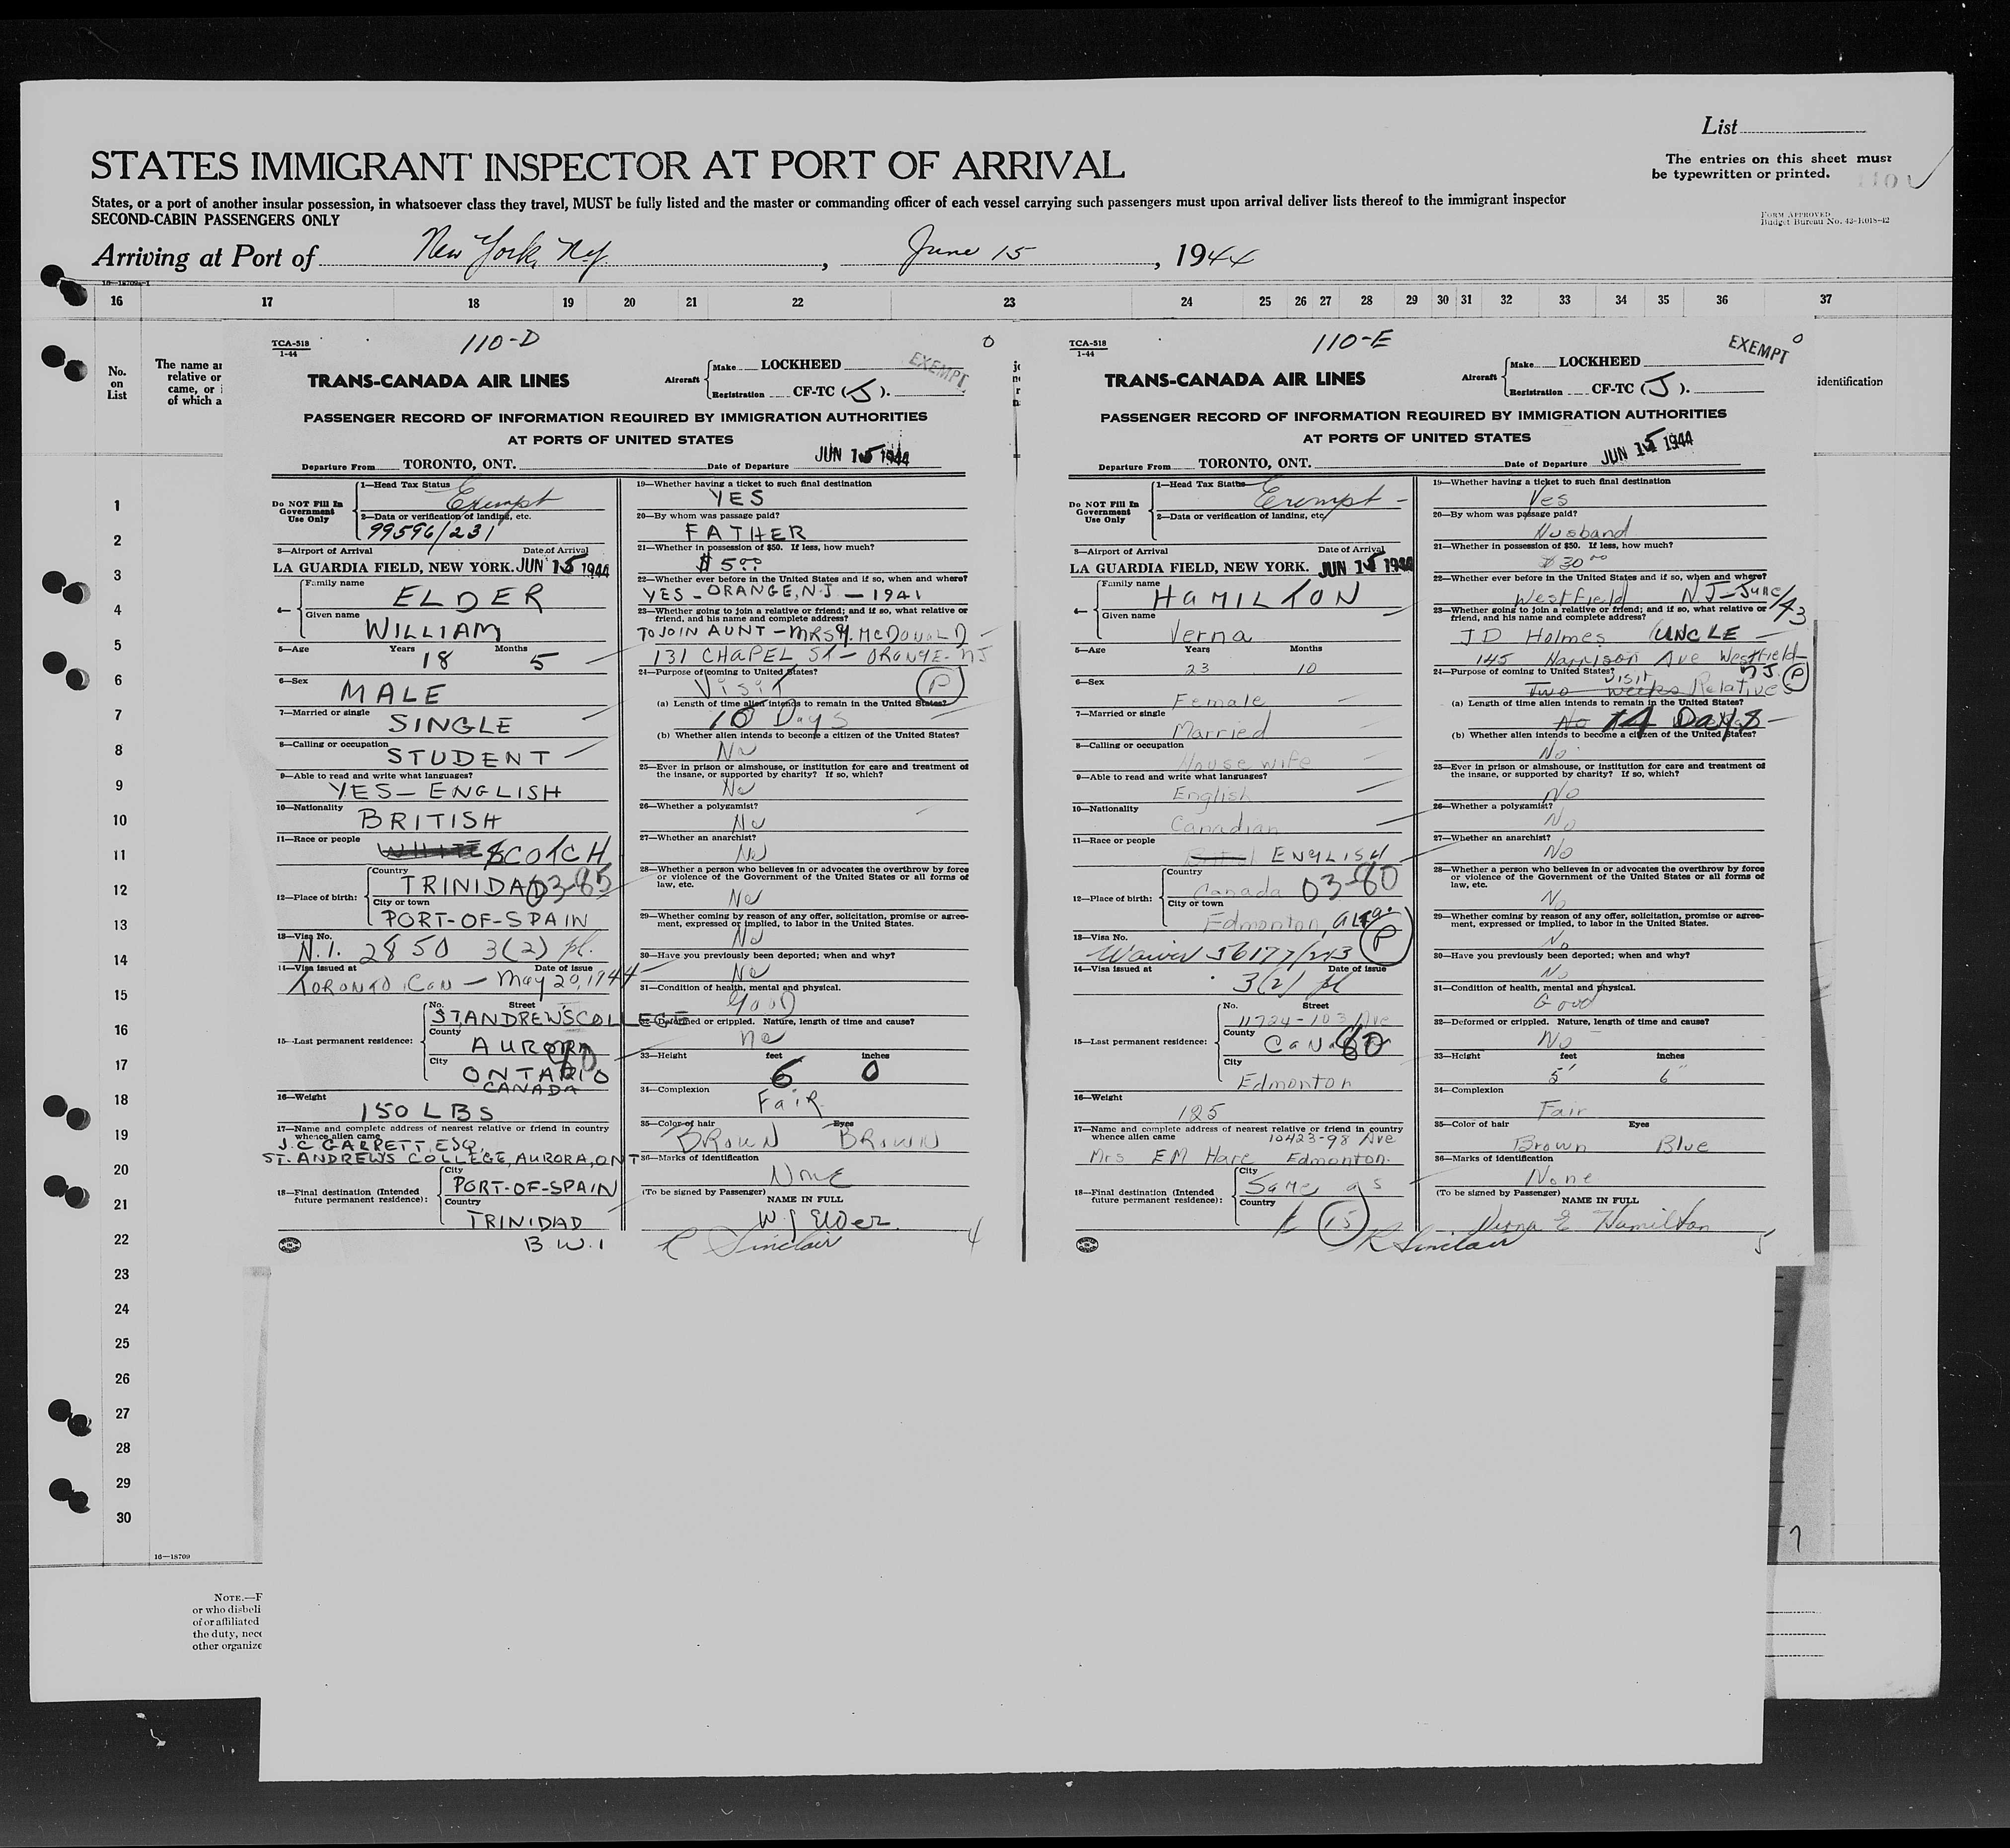 List
STATES IMMIGRANT INSPECTOR AT PORT OF ARRIVAL
The entries on this sheet must
be typewritten or printed.
110
States, or a port of another insular possession, in whatsoever class they travel, MUST be fully listed and the master or commanding officer of each vessel carrying such passengers must upon arrival deliver lists thereof to the immigrant inspector
SECOND-CABIN PASSENGERS ONLY
FORM APPROVED
Budget Bureau No. 43-R018-42
Arriving at Port of New York, N.Y. , June 15 , 1944
16 17 18 19 20 21 22 23 24 25 26 27 28 29 30 31 32 33 34 35 36 37
No.
on
List
The name an
relative or
came, or i
of which a
identification
1
2
3
4
5
6
7
8
9
10
11
12
13
14
15
16
17
18
19
20
21
22
23
24
25
26
27
28
29
30
16—18709
NOTE.—F
or who disbeli
of or affiliated
the duty, nece
other organize
TCA-518
1-44
110-D
TRANS-CANADA AIR LINES
Aircraft
Make LOCKHEED
Registration CF-TC (J).
EXEMPT
PASSENGER RECORD OF INFORMATION REQUIRED BY IMMIGRATION AUTHORITIES
AT PORTS OF UNITED STATES
Departure From TORONTO, ONT.
Date of Departure JUN 15 1944
Do NOT Fill In
Government
Use Only
1—Head Tax Status
Exempt
2—Data or verification of landing, etc.
99596/231
3—Airport of Arrival Date of Arrival
LA GUARDIA FIELD, NEW YORK. JUN 15 1944
4—
Family name
ELDER
Given name
WILLIAM
5—Age Years Months
18 5
6—Sex
MALE
7—Married or single
SINGLE
8—Calling or occupation
STUDENT
9—Able to read and write what languages?
YES — ENGLISH
10—Nationality
BRITISH
11—Race or people
WHITE SCOTCH
12—Place of birth:
Country
TRINIDAD 03-85
City or town
PORT-OF-SPAIN
13—Visa No.
N.I. 2850 3(2) pl.
14—Visa issued at Date of issue
TORONTO CAN — May 20, 1944
15—Last permanent residence:
No. Street
ST. ANDREWS COLLEGE
County
AURORA
City
ONTARIO
CANADA
16—Weight
150 LBS
17—Name and complete address of nearest relative or friend in country
whence alien came
J.C GARRETT, ESQ,
ST. ANDREWS COLLEGE, AURORA, ONT
18—Final destination (Intended
future permanent residence):
City
PORT-OF-SPAIN
Country
TRINIDAD
B.W.I
19—Whether having a ticket to such final destination
YES
20—By whom was passage paid?
FATHER
21—Whether in possession of $50. If less, how much?
$ 5.00
22—Whether ever before in the United States and if so, when and where?
YES - ORANGE, N.J. — 1941
23—Whether going to join a relative or friend; and if so, what relative or
friend, and his name and complete address?
TO JOIN AUNT — MRS Y. MCDONALD
131 CHAPEL ST — ORANGE NJ
24—Purpose of coming to United States?
Visit P
(a) Length of time alien intends to remain in the United States?
10 Days
(b) Whether alien intends to become a citizen of the United States?
No
25—Ever in prison or almshouse, or institution for care and treatment of
the insane, or supported by charity? If so, which?
No
26—Whether a polygamist?
No
27—Whether an anarchist?
No
28—Whether a person who believes in or advocates the overthrow by force
or violence of the Government of the United States or all forms of
law, etc.
No
29—Whether coming by reason of any offer, solicitation, promise or agree-
ment, expressed or implied, to labor in the United States.
No
30—Have you previously been deported; when and why?
No
31—Condition of health, mental and physical.
GOOD
32—Deformed or crippled. Nature, length of time and cause?
no
33—Height feet inches
6 0
34—Complexion
FAIR
35—Color of hair Eyes
BROWN BROWN
36—Marks of identification
NONE
(To be signed by Passenger)
NAME IN FULL
W J Elder.
R Sinclair
4
TCA-518
1-44
110-E
TRANS-CANADA AIR LINES
Aircraft
Make LOCKHEED
Registration CF-TC (J).
EXEMPT
PASSENGER RECORD OF INFORMATION REQUIRED BY IMMIGRATION AUTHORITIES
AT PORTS OF UNITED STATES
Departure From TORONTO, ONT.
Date of Departure JUN 15 1944
Do NOT Fill In
Government
Use Only
1—Head Tax Status
Exempt
2—Data or verification of landing, etc.
3—Airport of Arrival Date of Arrival
LA GUARDIA FIELD, NEW YORK. JUN 15 1944
4—
Family name
HAMILTON
Given name
Verna
5—Age Years Months
23 10
6—Sex
Female
7—Married or single
Married
8—Calling or occupation
House wife
9—Able to read and write what languages?
English
10—Nationality
Canadian
11—Race or people
ENGLISH
12—Place of birth:
Country
Canada 03-80
City or town
Edmonton, Alta.
P
13—Visa No.
Waiver 56177/243
14—Visa issued at Date of issue
3(2) pl
15—Last permanent residence:
No. Street
11724-103 Ave
County
Canada 80
City
Edmonton
16—Weight
125
17—Name and complete address of nearest relative or friend in country
whence alien came 10423-98 Ave
Mrs EM Hare Edmonton.
18—Final destination (Intended
future permanent residence):
City
Same as
Country
15
19—Whether having a ticket to such final destination
Yes
20—By whom was passage paid?
Husband
21—Whether in possession of $50. If less, how much?
$ 30.00
22—Whether ever before in the United States and if so, when and where?
Westfield NJ — June/43
23—Whether going to join a relative or friend; and if so, what relative or
friend, and his name and complete address?
JD Holmes UNCLE
145 Harrison Ave Westfield
NJ. P
24—Purpose of coming to United States?
Two weeks visit Relative
(a) Length of time alien intends to remain in the United States?
No 14 DAYS
(b) Whether alien intends to become a citizen of the United States?
No
25—Ever in prison or almshouse, or institution for care and treatment of
the insane, or supported by charity? If so, which?
No
26—Whether a polygamist?
No
27—Whether an anarchist?
No
28—Whether a person who believes in or advocates the overthrow by force
or violence of the Government of the United States or all forms of
law, etc.
No
29—Whether coming by reason of any offer, solicitation, promise or agree-
ment, expressed or implied, to labor in the United States.
No
30—Have you previously been deported; when and why?
No
31—Condition of health, mental and physical.
Good
32—Deformed or crippled. Nature, length of time and cause?
No
33—Height feet inches
5' 6"
34—Complexion
Fair
35—Color of hair Eyes
Brown Blue
36—Marks of identification
None
(To be signed by Passenger)
NAME IN FULL
Verna E Hamilton
R Sinclair
5
7